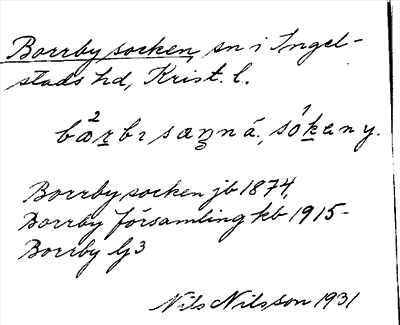 Borrby socken, sn i Ingel-
stads hd, Krist. l.
Borrby socken jb 1874,
Borrby församling kb 1915-
Borrby lj3
Nils Nilsson 1931